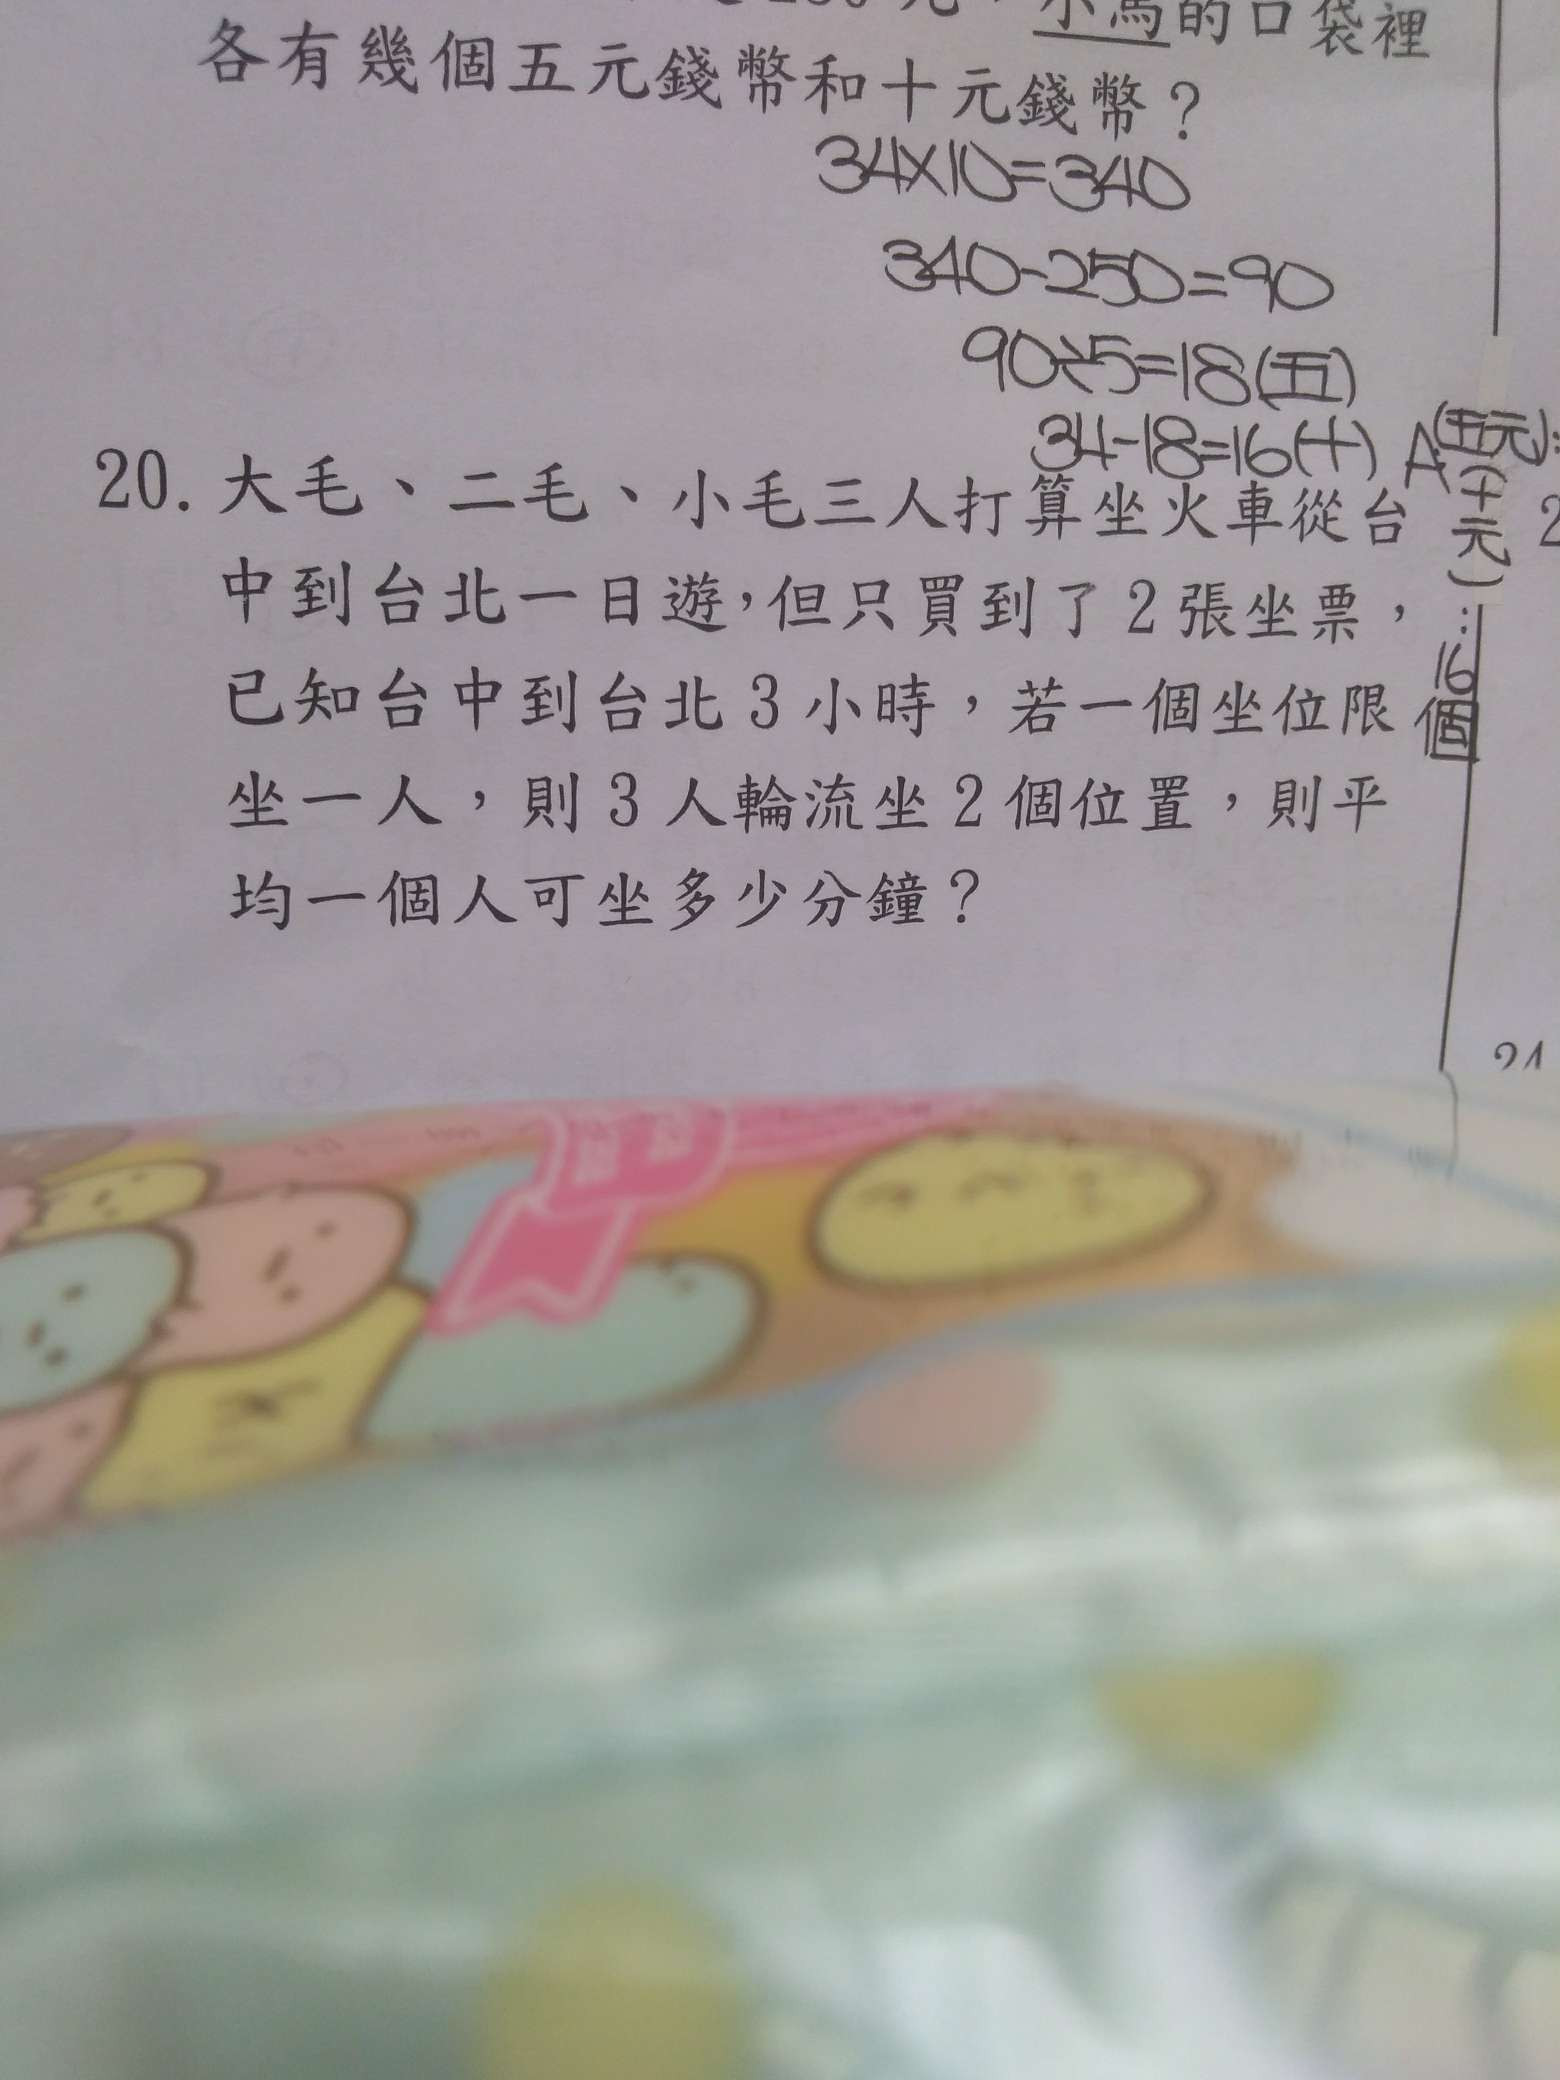 小馬的口袋裡
各有幾個五元錢幣和十元錢幣？
34×10=340
340-250=90
90÷5=18(五)
34-18=16(十)
A(五元):
(十元):16個
20. 大毛、二毛、小毛三人打算坐火車從台
中到台北一日遊，但只買到了2張坐票，
已知台中到台北3小時，若一個坐位限
坐一人，則3人輪流坐2個位置，則平
均一個人可坐多少分鐘？